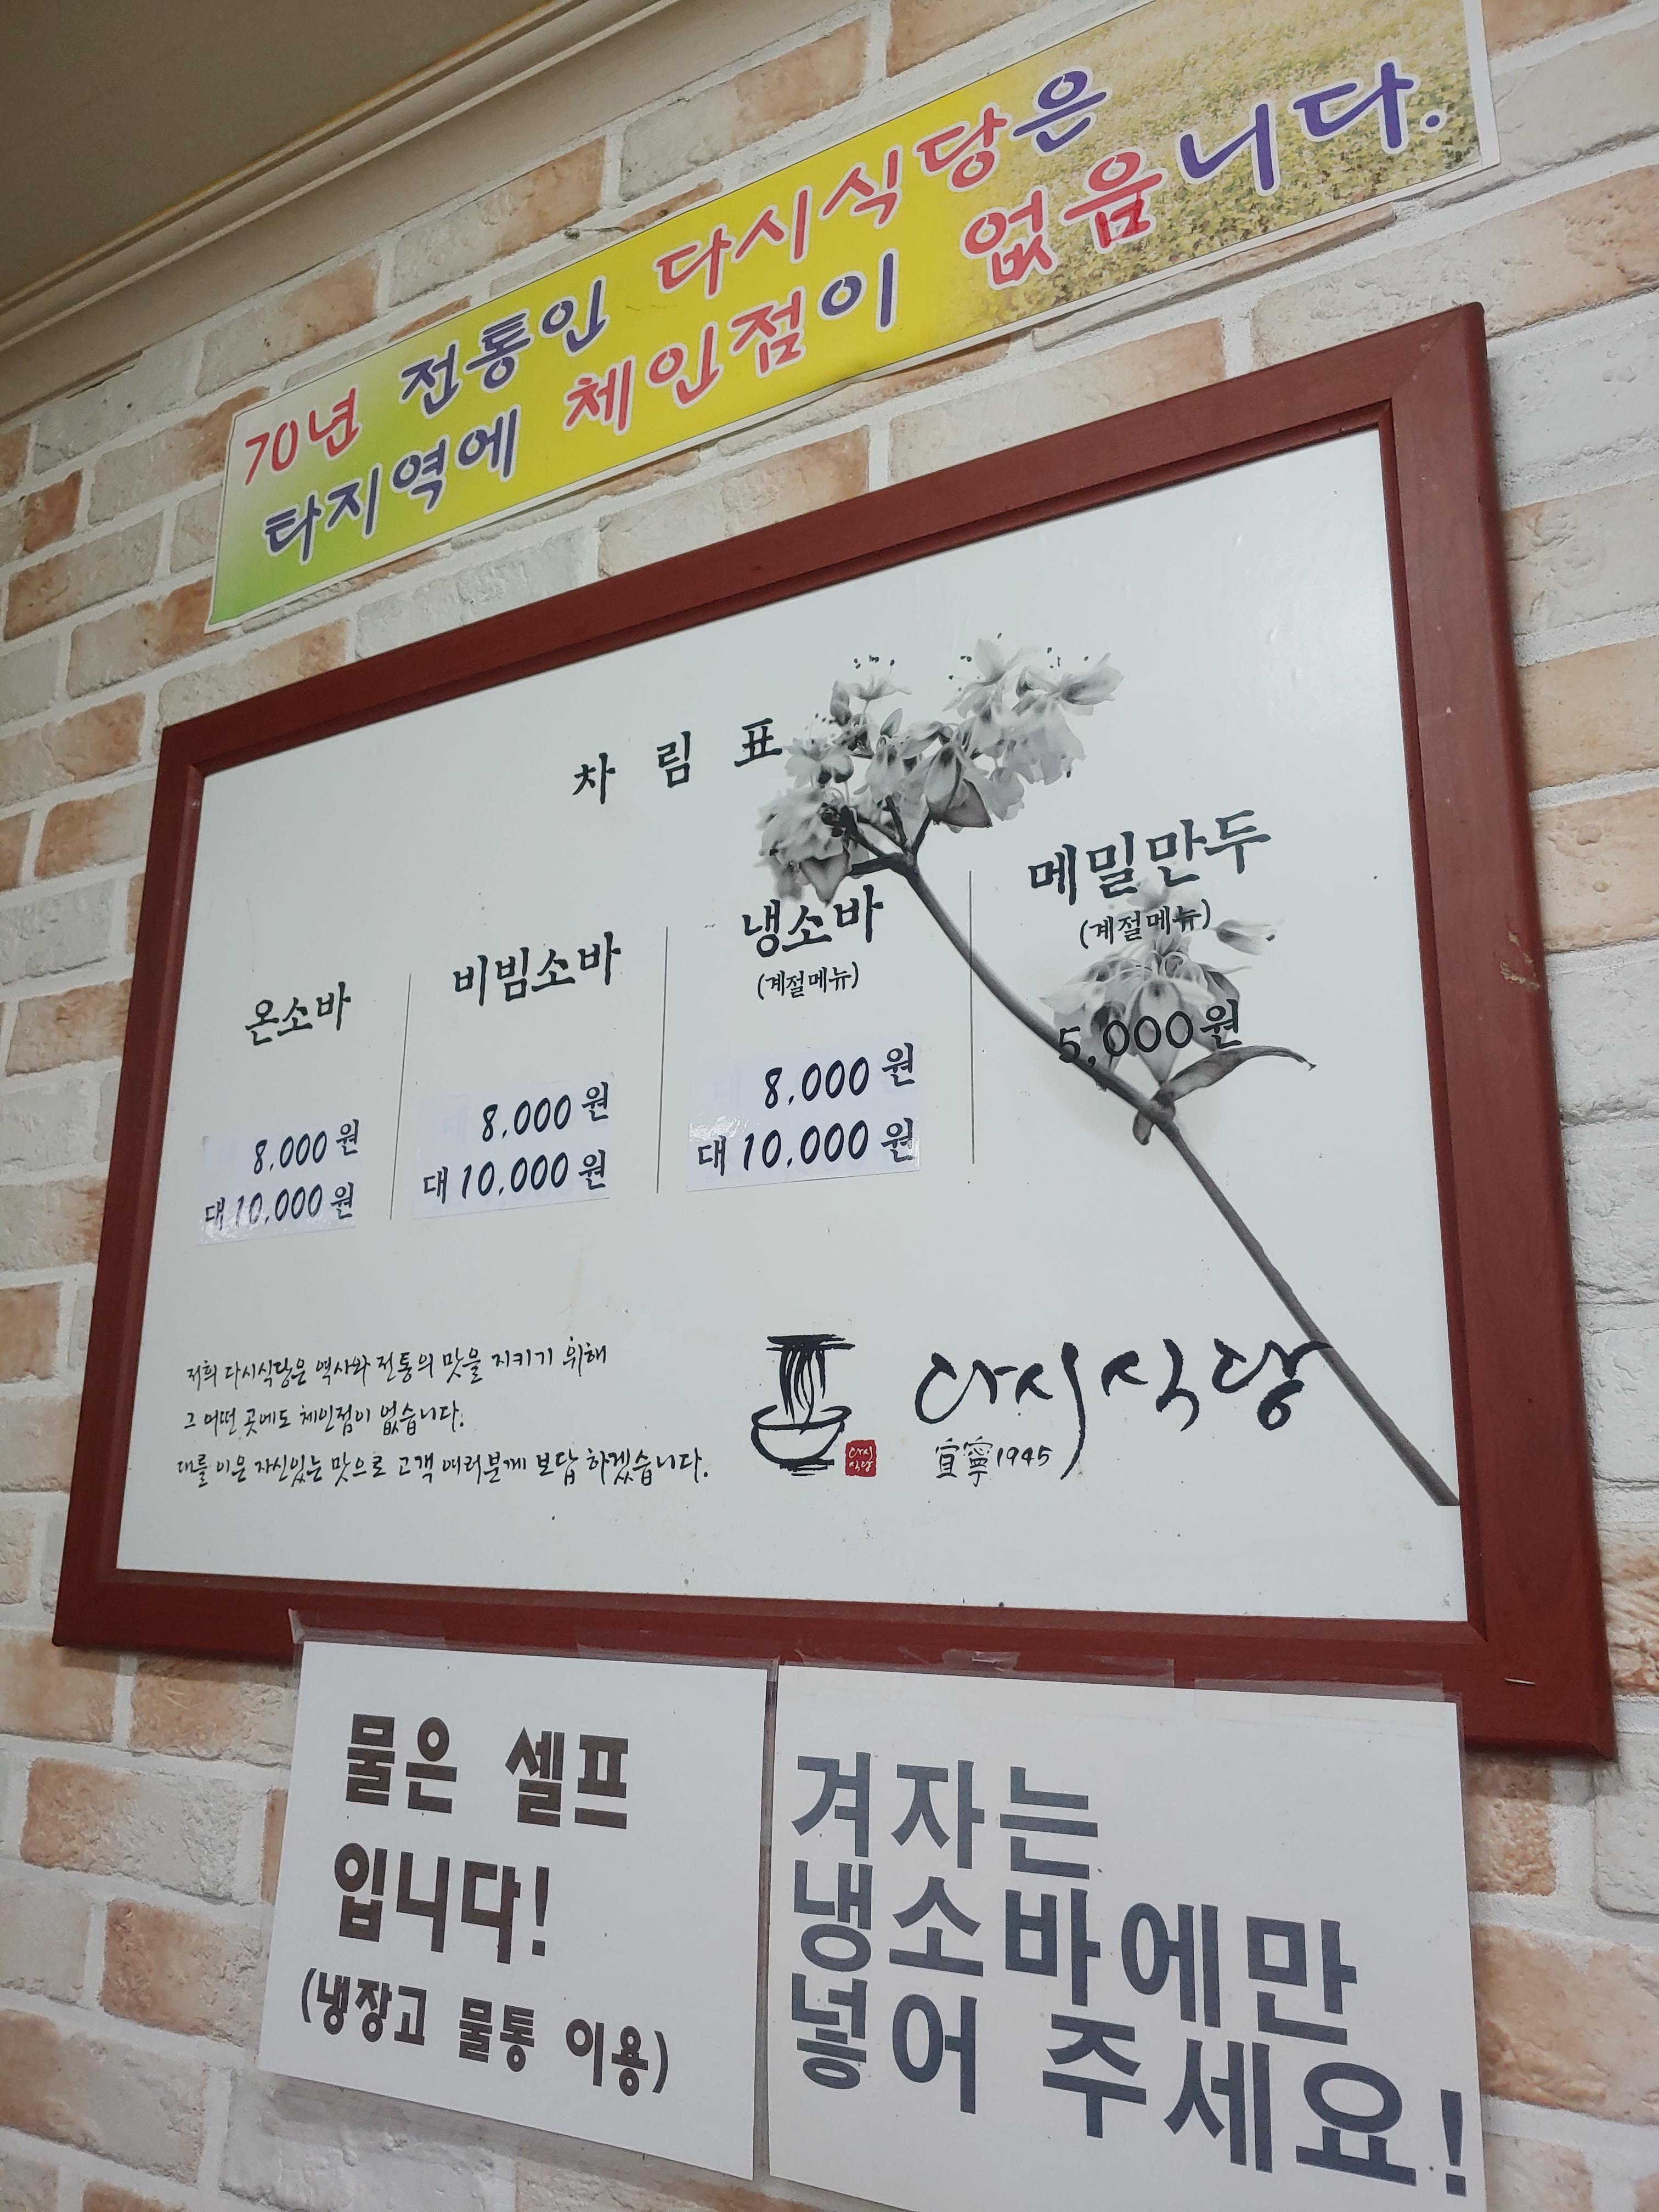 70년 전통인 다시식당은
타지역에 체인점이 없음니다.
차림표
온소바
8,000원
대 10,000원
비빔소바
8,000원
대 10,000원
냉소바
(계절메뉴)
8,000원
대 10,000원
메밀만두
(계절메뉴)
5,000원
저희 다시식당은 역사와 전통의 맛을 지키기 위해
그 어떤 곳에도 체인점이 없습니다.
대를 이은 자신있는 맛으로 고객 여러분께 보답 하겠습니다.
다시
식당
다시식당
宜寧1945
물은 셀프
입니다!
(냉장고 물통 이용)
겨자는
냉소바에만
넣어 주세요!